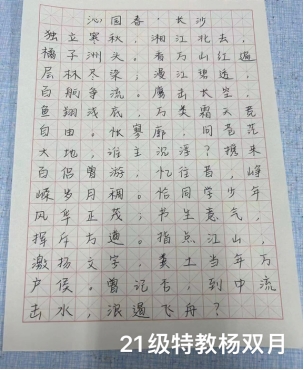 沁园春·长沙
独立寒秋,湘江北去,
橘子洲头。看万山红遍
层林尽染;漫江碧透,
百舸争流。鹰击长空,
鱼翔浅底,万类霜天竞
自由。怅寥廓,问苍茫
大地,谁主沉浮?携来
百侣曾游,忆往昔,峥
嵘岁月稠。恰同学少年
风华正茂;书生意气,
挥斥方遒。指点江山,
激扬文字,粪土当年万
户侯。曾记否,到中流
击水,浪遏飞舟?
21级特教杨双月